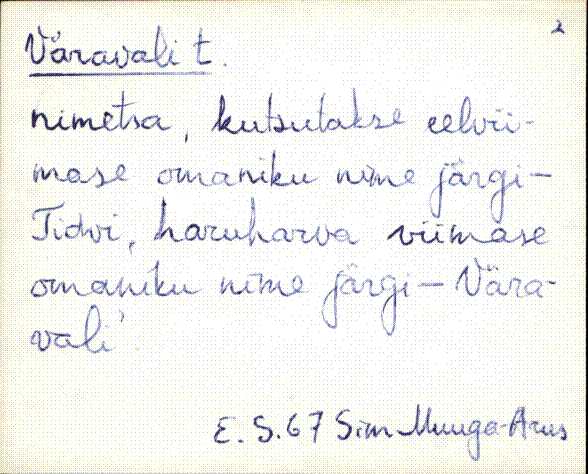 2
Väravali t.
nimetsa, kutsutakse eelvii-
mase omaniku nime järgi –
Tidvi, haruharva viimase
omaniku nime järgi – Vära-
vali'.
E. S. 67 Sim Muuga-Arus